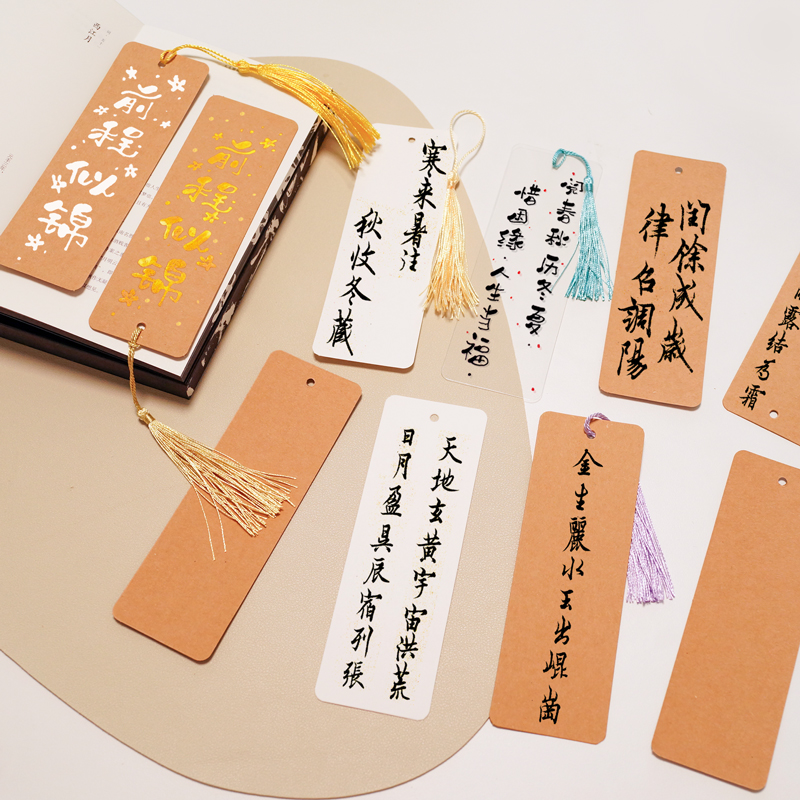 西江月
前程似锦
前程似锦
寒来暑往
秋收冬藏
阅春秋历冬夏
惜因缘·人生幸福·
闰餘成歲
律召調陽
露结為霜
天地玄黄宇宙洪荒
日月盈昃辰宿列張
金生麗水玉出崐崗